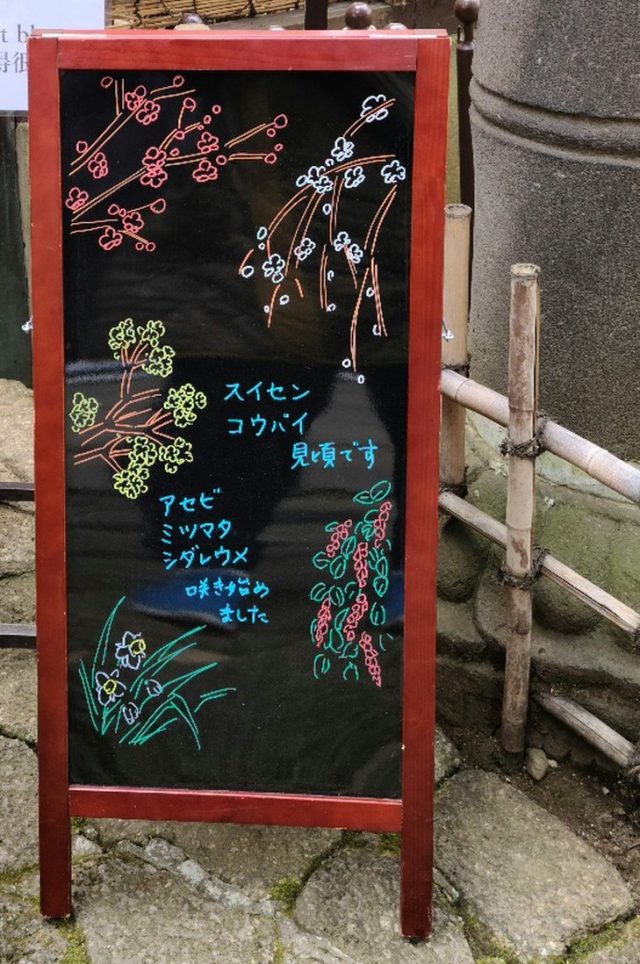 スイセン
コウバイ
見頃です
アセビ
ミツマタ
シダレウメ
咲き始め
ました